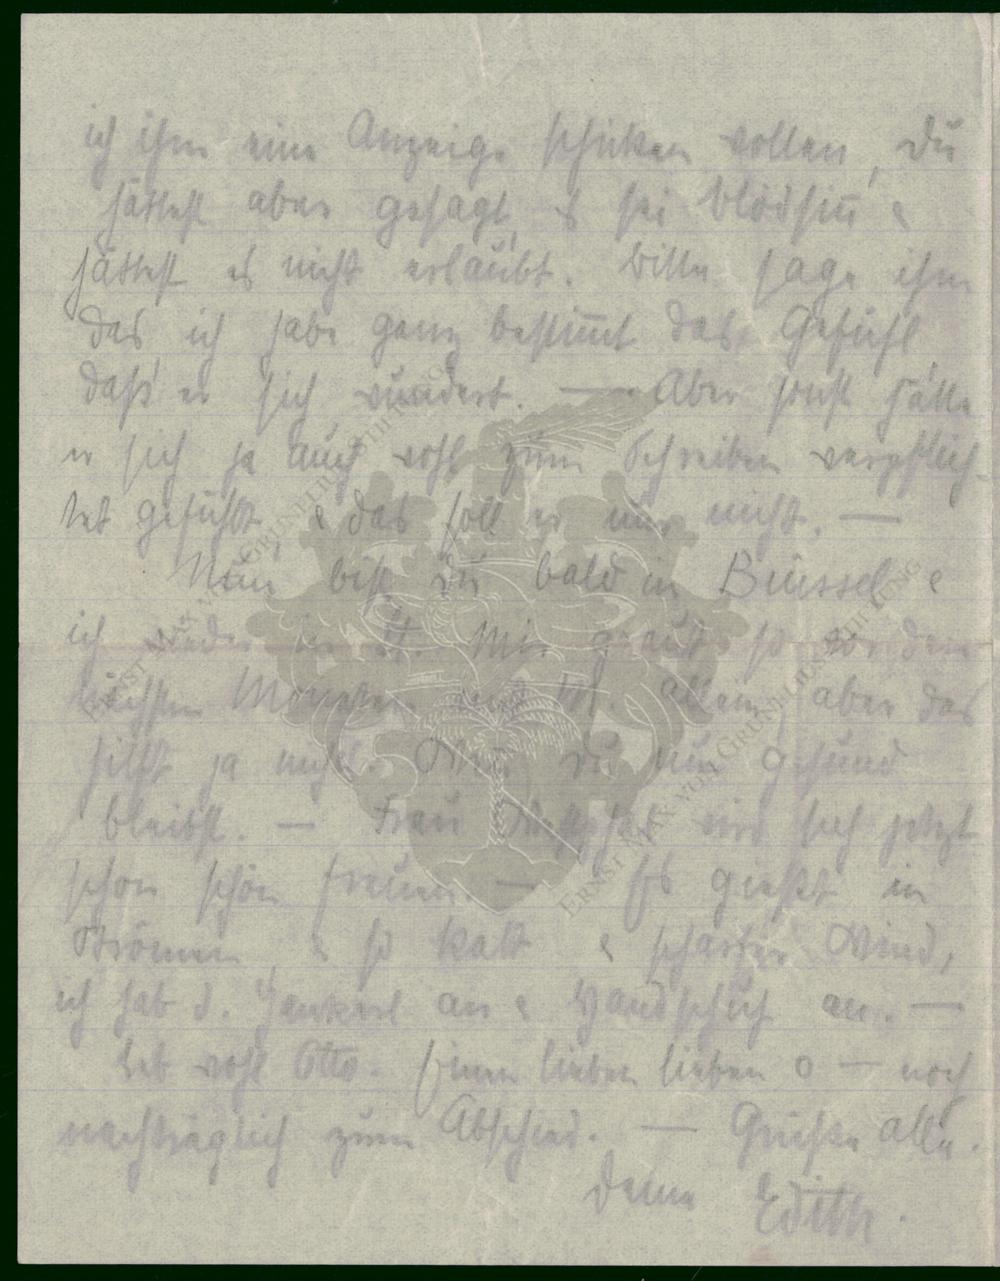 ich ihm eine Anzeige schicken wollen, Du
hättest aber gesagt, es sei Blödsinn &
hättest es nicht erlaubt. Bitte sage ihm
das, ich habe ganz bestimmt das Gefühl,
daß er sich wundert. — Aber sonst hätte
er sich ja auch wohl zum Schreiben verpflich-
tet gefühlt, & das soll er nur nicht. —
Nun bist Du bald in Brüssel &
ich wieder in St. Mir graut so vor den
nächsten Monaten in St. allein, aber das
hilft ja nicht. Wenn Du nur gesund
bleibst. — Frau wird sich jetzt
schon schön freuen. — Es gießt in
Strömen & so kalt & scharfer Wind,
ich hab d. Jankerl an & Handschuh an. —
Leb wohl Otto. Einen lieben lieben o — noch
nachträglich zum Abschied. — Grüße alle.
Deine Edith.
ERNST MAX VON GRUNELIUS-STIFTUNG
ERNST MAX VON GRUNELIUS-STIFTUNG